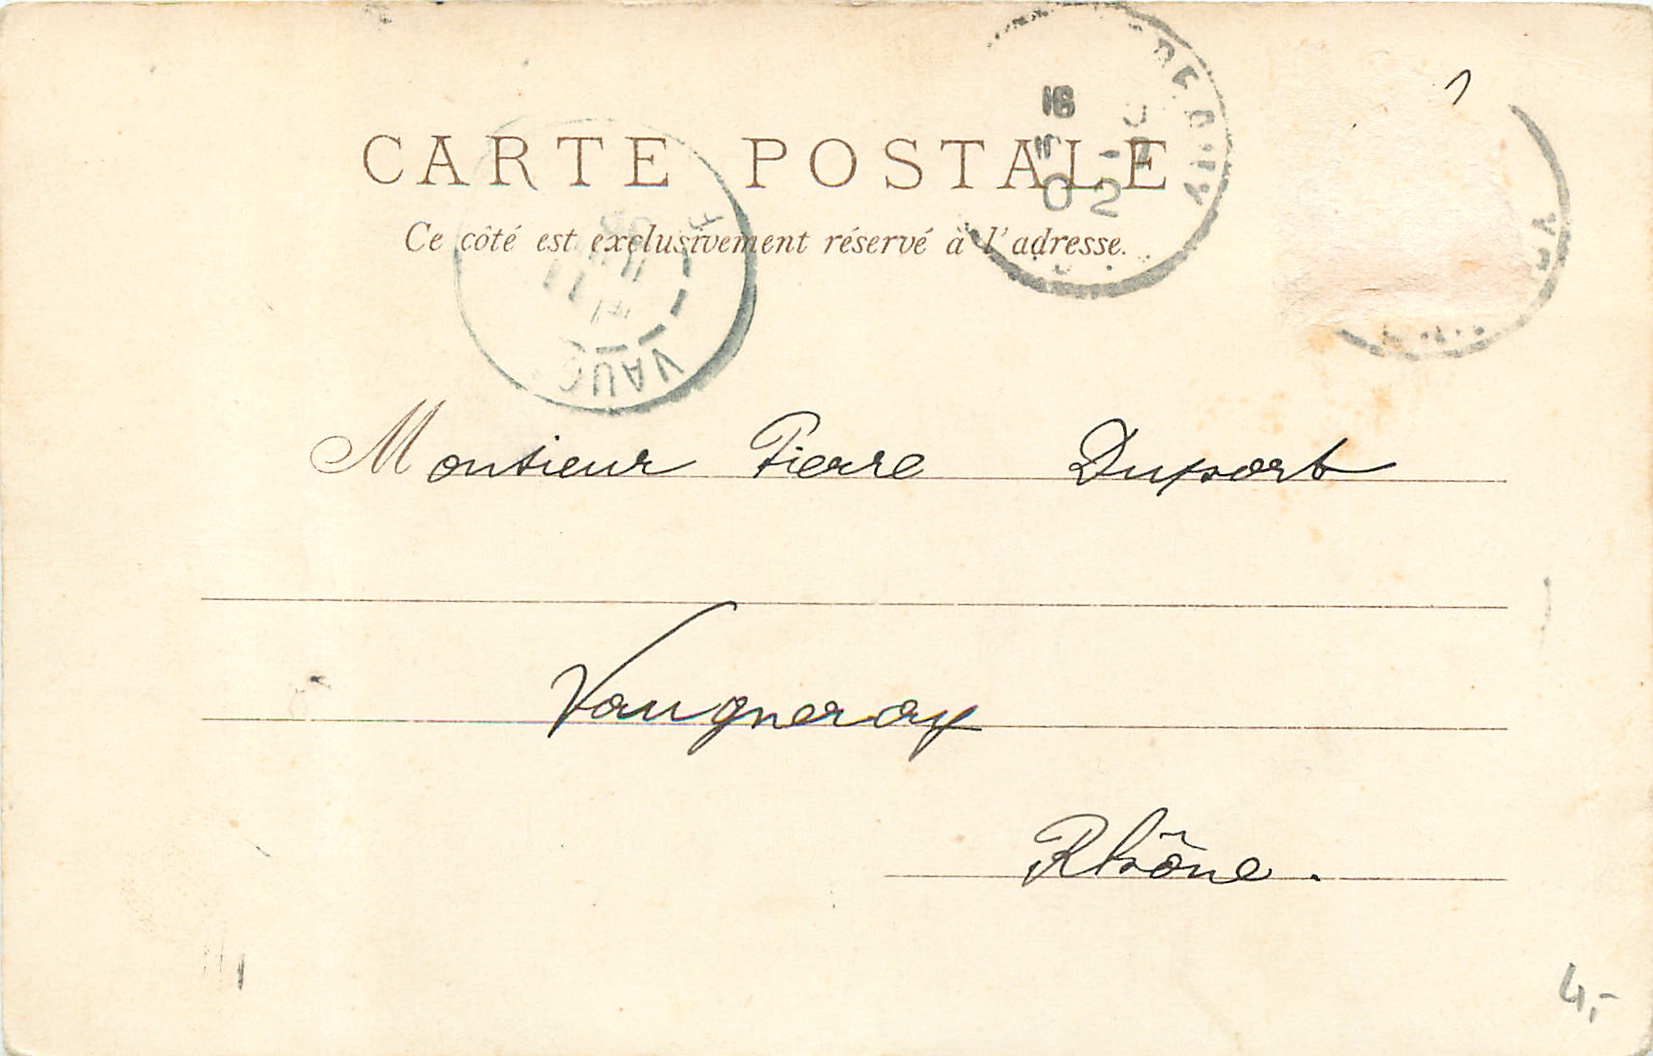 CARTE POSTALE
Ce côté est exclusivement réservé à l'adresse.
VAUG
Monsieur Pierre Duport
Vaugneray
Rhône.
4,-